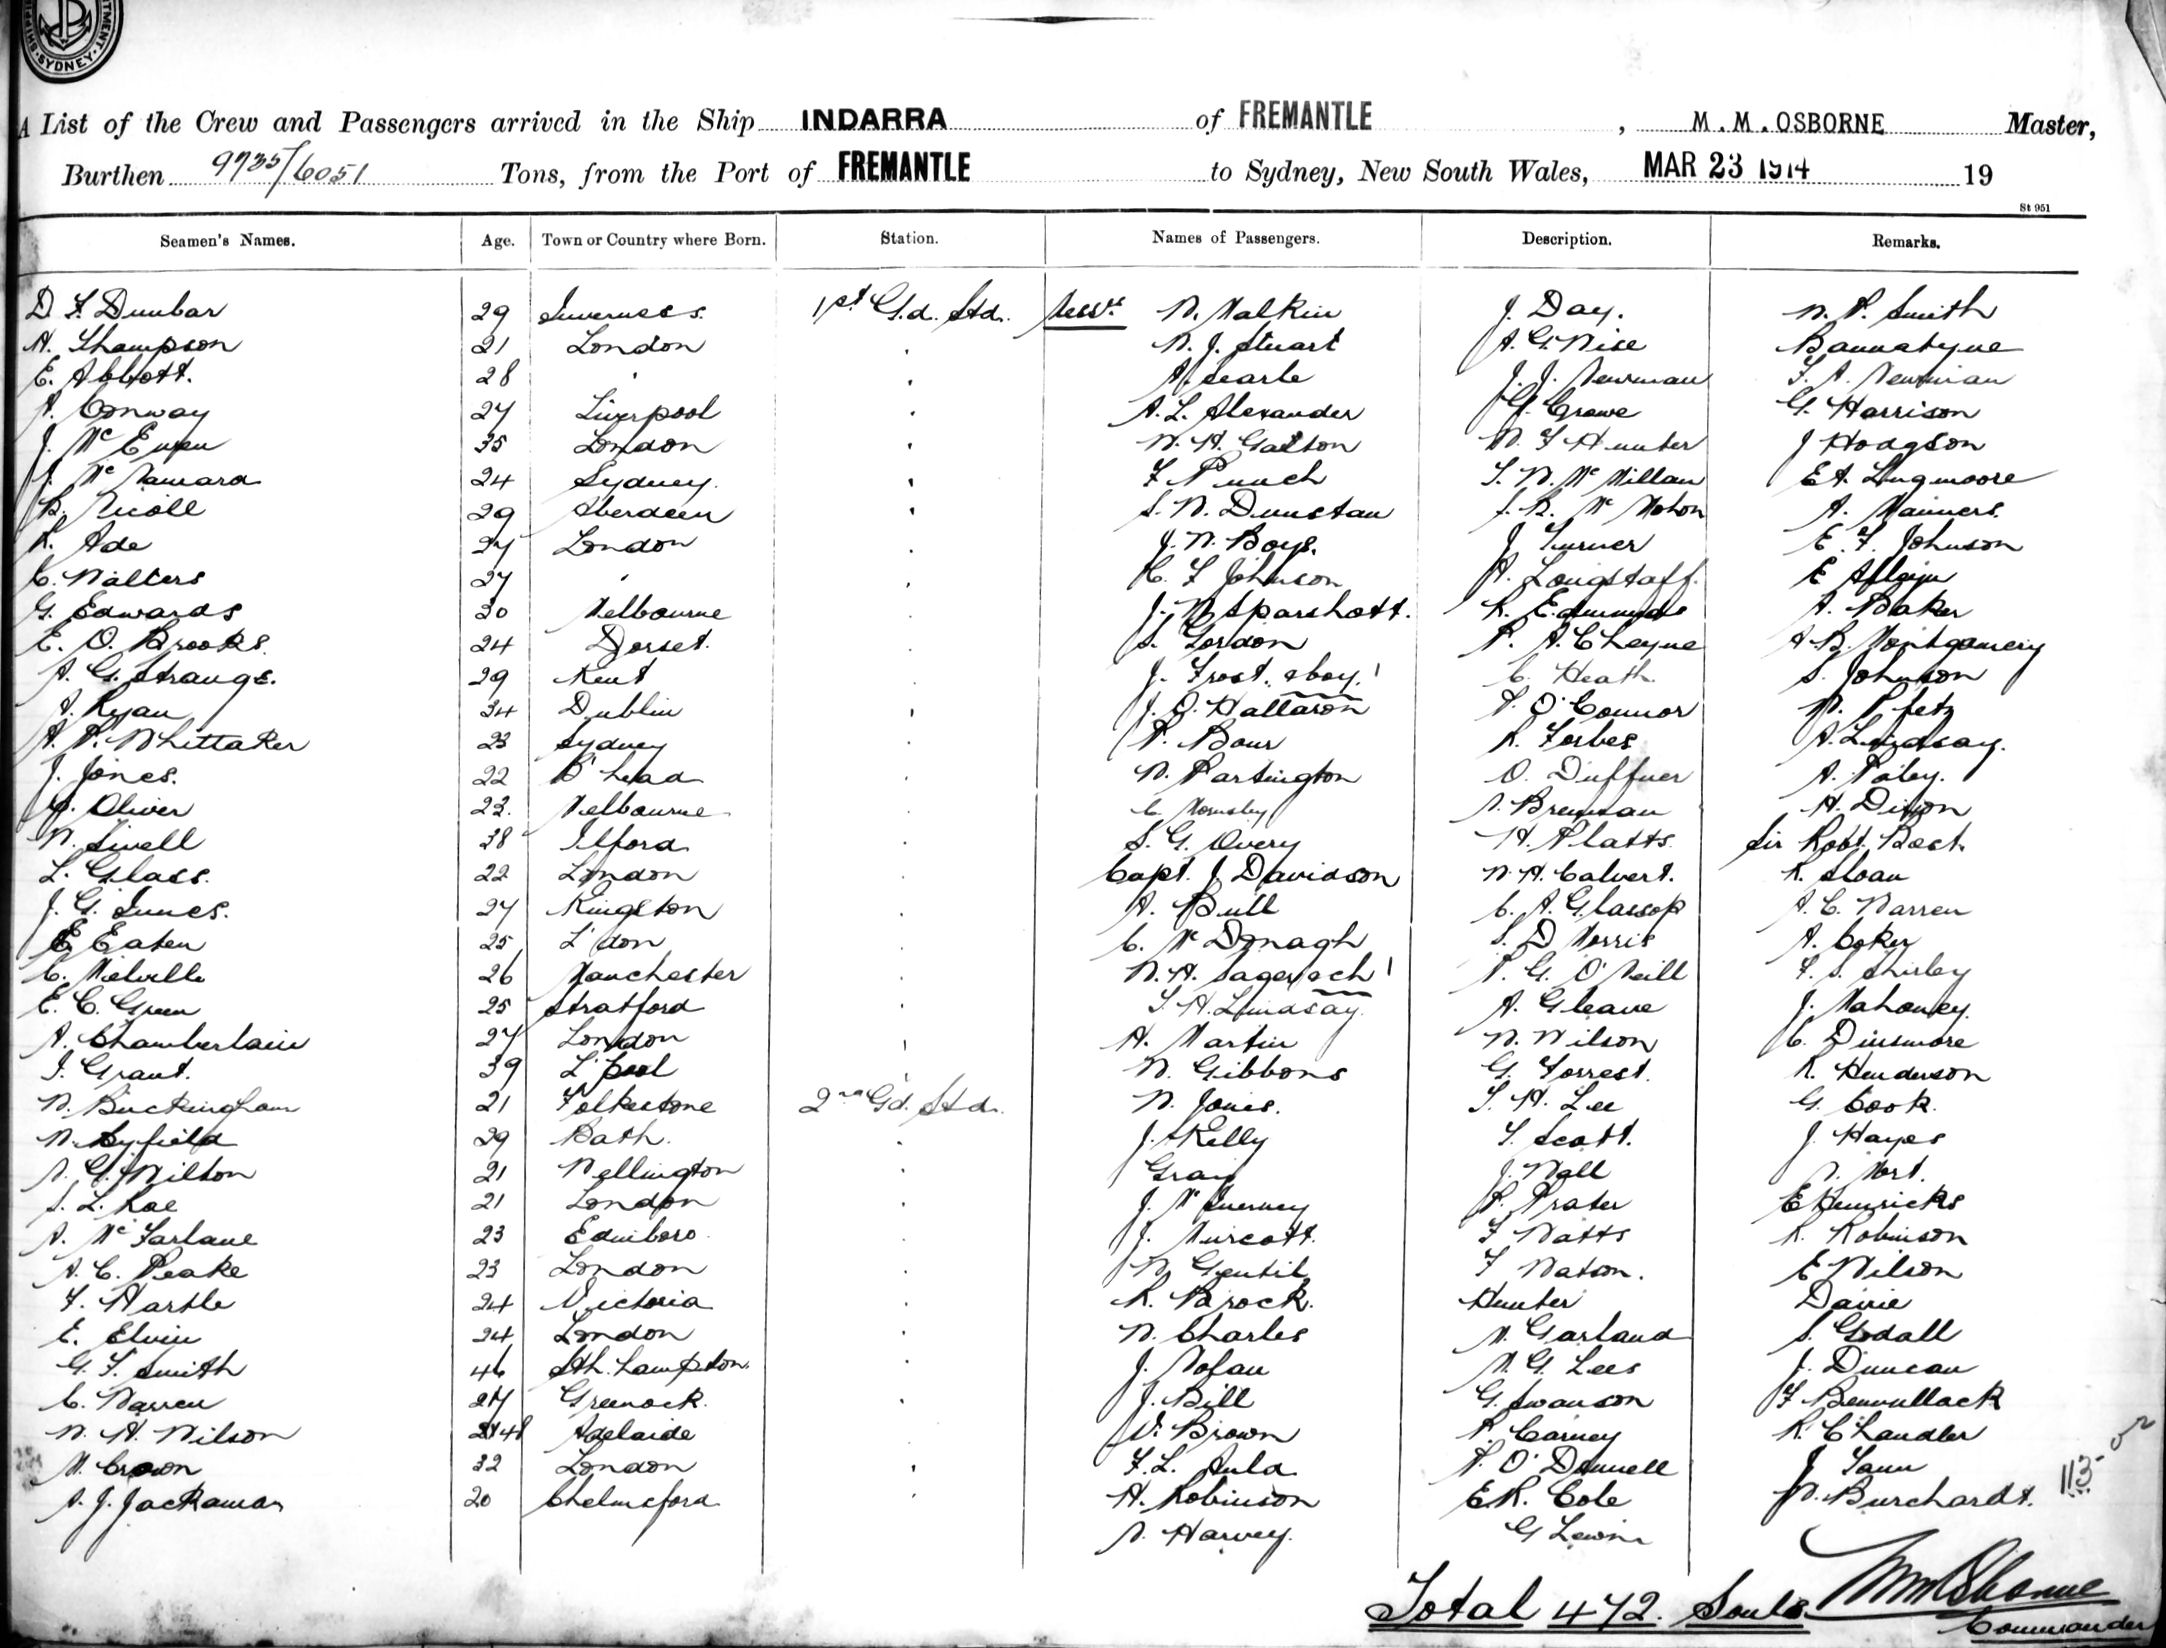 SYDNEY
A List of the Crew and Passengers arrived in the Ship INDARRA of FREMANTLE, M. M. OSBORNE Master,
Burthen 9735/6051 Tons, from the Port of FREMANTLE to Sydney, New South Wales, MAR 23 1914 19
St 951
Seamen's Names. Age. Town or Country where Born. Station. Names of Passengers. Description. Remarks.
D. F. Dunbar 29 Inverness. 1st Gd. Std. Messrs. W. Malkin J. Day. W. P. Smith
H. Thompson 21 London W. J. Stuart A. G. Wise Bannatyne
E. Abbott. 28 " A. Searle J. J. Newman F. A. Newman
A. Conway 27 Liverpool A. L. Alexander G. Crowe G. Harrison
J. McEwen 35 London W. H. Galton W. F. Hunter J Hodgson
J. McNamara 24 Sydney. F Punch T. W. McMillan E A. Lugmoore
B. Nicoll 29 Aberdeen S. W. Dunstan J. B. McMohon A. Manners.
R. Ade 27 London J. W. Boys. J Turner E. F. Johnson
C. Walters 27 " C. F Johnson A. Longstaff.
G. Edwards 30 Melbourne J. W Sparshott. R. Edmunds A. Baker
E. O. Brooks. 24 Dorset. S. Gordon P. A. Cheyne A. B. Montgomery
A. G. Strange. 29 Kent J. Frost. & boy. 1 C. Heath. S. Johnson
A. Ryan 34 Dublin J. O. Hallaron P. O'Connor W. Pfetz
A. P. Whittaker 23 Sydney P. Bour R. Forbes A. Lindsay.
J. Jones. 22 B'head W. Partington O. Duffner A. Paley.
Oliver 22. Melbourne C Hornsby Brennan H. Dixon
W. Sivell 38 Ilford S. G. Overy H. Platts Sir Robt. Best.
L. Glass. 22 London Capt. J. Davidson W. H. Calvert. R. Sloan
J. G. Innes. 27 Kingston A. Bull C. A. Glassop A. C. Warren
E. Eaten 25 L'don C. McDonagh S. D Morris A. Coker
C. Melville 26 Manchester W. H. Sager & ch 1 P. G. O'Neill F. S. Shirley
E. C. Green 25 Stratford T. H. Lindsay A. Gleave J. Mahoney.
A. Chamberlain 27 London H. Martin W. Wilson C. Dinsmore
J. Grant. 39 L'pool W. Gibbons G. Forrest. R. Henderson
W. Buckingham 21 Folkestone 2nd Gd. Std. W. Jones. T. H. Lee G. Cook.
W. Byfield 29 Bath. J. Kelly T. Scott. J. Hayes
A. G. Wilton 21 Wellington Gray J. Wall Mort.
S. L. Rae 21 London J. McInerney P. Prater E Henricks
A. McFarlane 23 Edinboro J. Murcott. F Watts R. Robinson
A. C. Peake 23 London W. Gentil F Watson. E Wilson
F. Hartle 24 Victoria R. Brock. Hunter Davie
E. Elvin 24 London W. Charles M. Garland S. Godall
G. F. Smith 46 Sth. hampton. J. Nolan M. G. Lees J. Duncan
C. Warren 27 Greenock. J. Bill G. Swanson F Benvullack
W. H. Wilson 48 Adelaide D. Brown P. Carney R. Chandler
M. Crown 32 London F. L. Auld P. O'Donnell J Tann
A. J. Jackaman 20 Chelmsford H. Robinson E R. Cole W. Burchardt. 113
A. Harvey. G Lewin
Total 472. Souls. M M Osborne
Commander